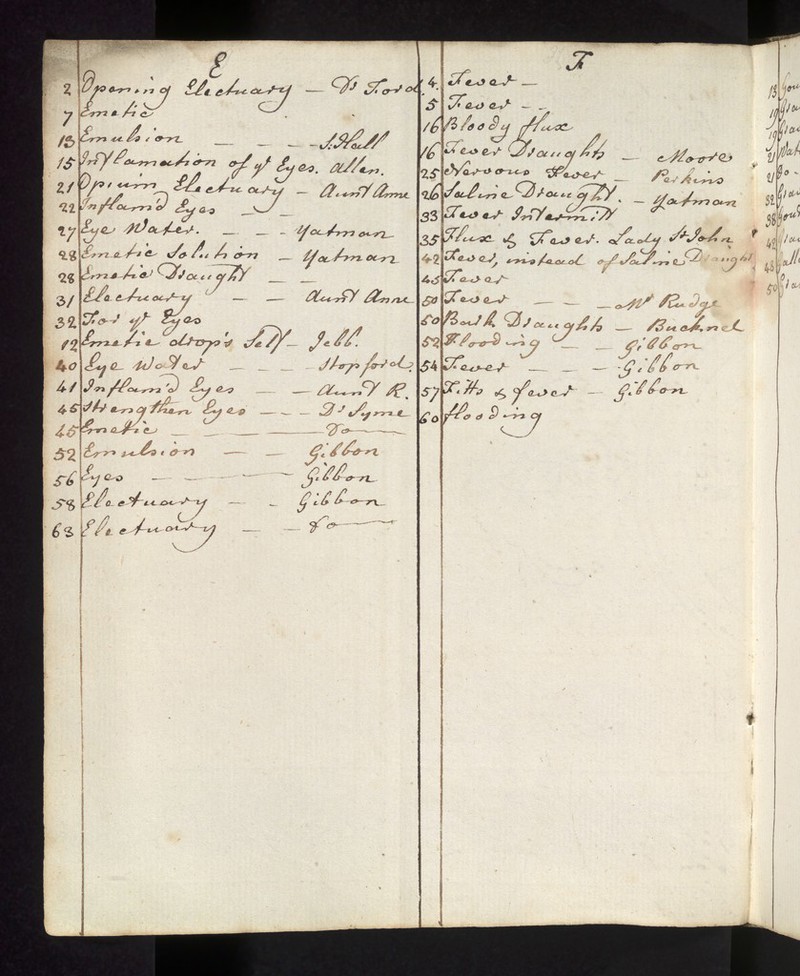 E
2 Opening Electuary — Dr Ford
7 Emetic
13 Emulsion — — — S. Hall
15 Inflamation of ye Eyes. Allen.
21 Opium Electuary — Aunt Anne
22 Inflam'd Eyes — —
27 Eye Water. — — - Yatman
28 Emetic Solution — Yatman
28 Emetic Draught — —
31 Electuary — — Aunt Anne
32 For ye Eyes
12 Emetic drop's Self — Jebb.
40 Eye Water — — — Stopford.
41 Inflam'd Eyes — — Aunt R.
45 Strengthen Eyes — — - Dr Syme
45 Emetic — — Do —
52 Emulsion — — Gibbon
56 Eyes — — Gibbon
58 Electuary — - Gibbon
63 Electuary — — Do —
F
4. Fever —
5 Fever - -
16 Bloody flux
16 Fever Draughts — Moore
25 Nervous Fever — Perkins
26 Saline Draught. — Yatman
33 Fever Intermitt
35 Flux & Fever. Lady St John
42 Fever, instead of Saline Draught
45 Fever
50 Fever — — — Mr Rudge
50 Bark Draughts — Bucknel
52 Flooding — — Gibbon
54 Fever — — - Gibbon
57 Fitts & fever — Gibbon
60 flooding